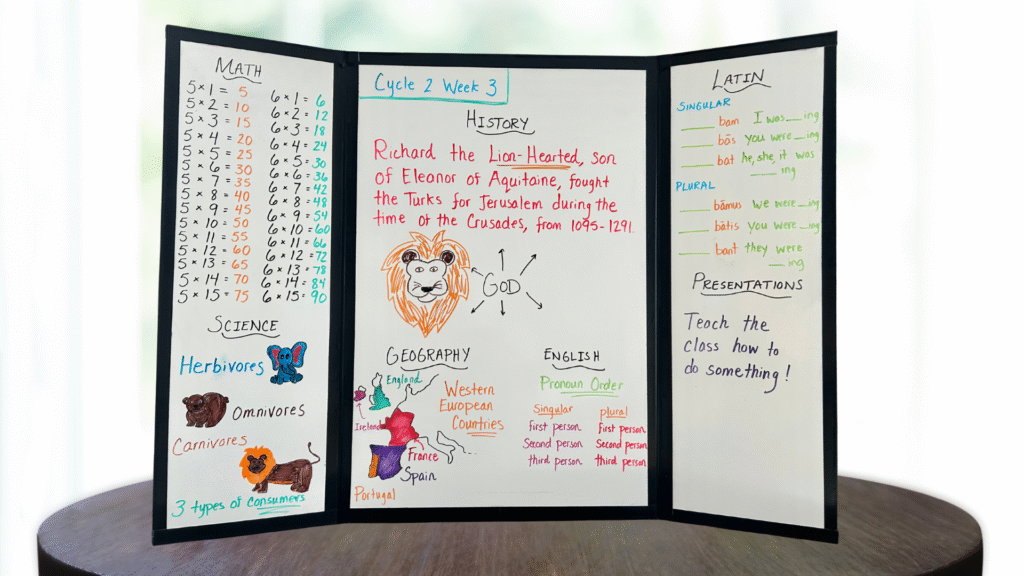 MATH
5 × 1 = 5
5 × 2 = 10
5 × 3 = 15
5 × 4 = 20
5 × 5 = 25
5 × 6 = 30
5 × 7 = 35
5 × 8 = 40
5 × 9 = 45
5 × 10 = 50
5 × 11 = 55
5 × 12 = 60
5 × 13 = 65
5 × 14 = 70
5 × 15 = 75
6 × 1 = 6
6 × 2 = 12
6 × 3 = 18
6 × 4 = 24
6 × 5 = 30
6 × 6 = 36
6 × 7 = 42
6 × 8 = 48
6 × 9 = 54
6 × 10 = 60
6 × 11 = 66
6 × 12 = 72
6 × 13 = 78
6 × 14 = 84
6 × 15 = 90
SCIENCE
Herbivores
Omnivores
Carnivores
3 types of consumers
Cycle 2 Week 3
HISTORY
Richard the Lion-Hearted, son
of Eleanor of Aquitaine, fought
the Turks for Jerusalem during the
time of the Crusades, from 1095-1291.
GOD
GEOGRAPHY
England
Ireland
Western
European
Countries
France
Spain
Portugal
ENGLISH
Pronoun Order
Singular
First person
Second person
third person
plural
First person
Second person
third person
LATIN
SINGULAR
____ bam I was __ing
____ bās you were __ing
____ bat he, she, it was
____ ing
PLURAL
____ bāmus we were __ing
____ bātis you were __ing
____ bant they were
__ ing
PRESENTATIONS
Teach the
class how to
do something!